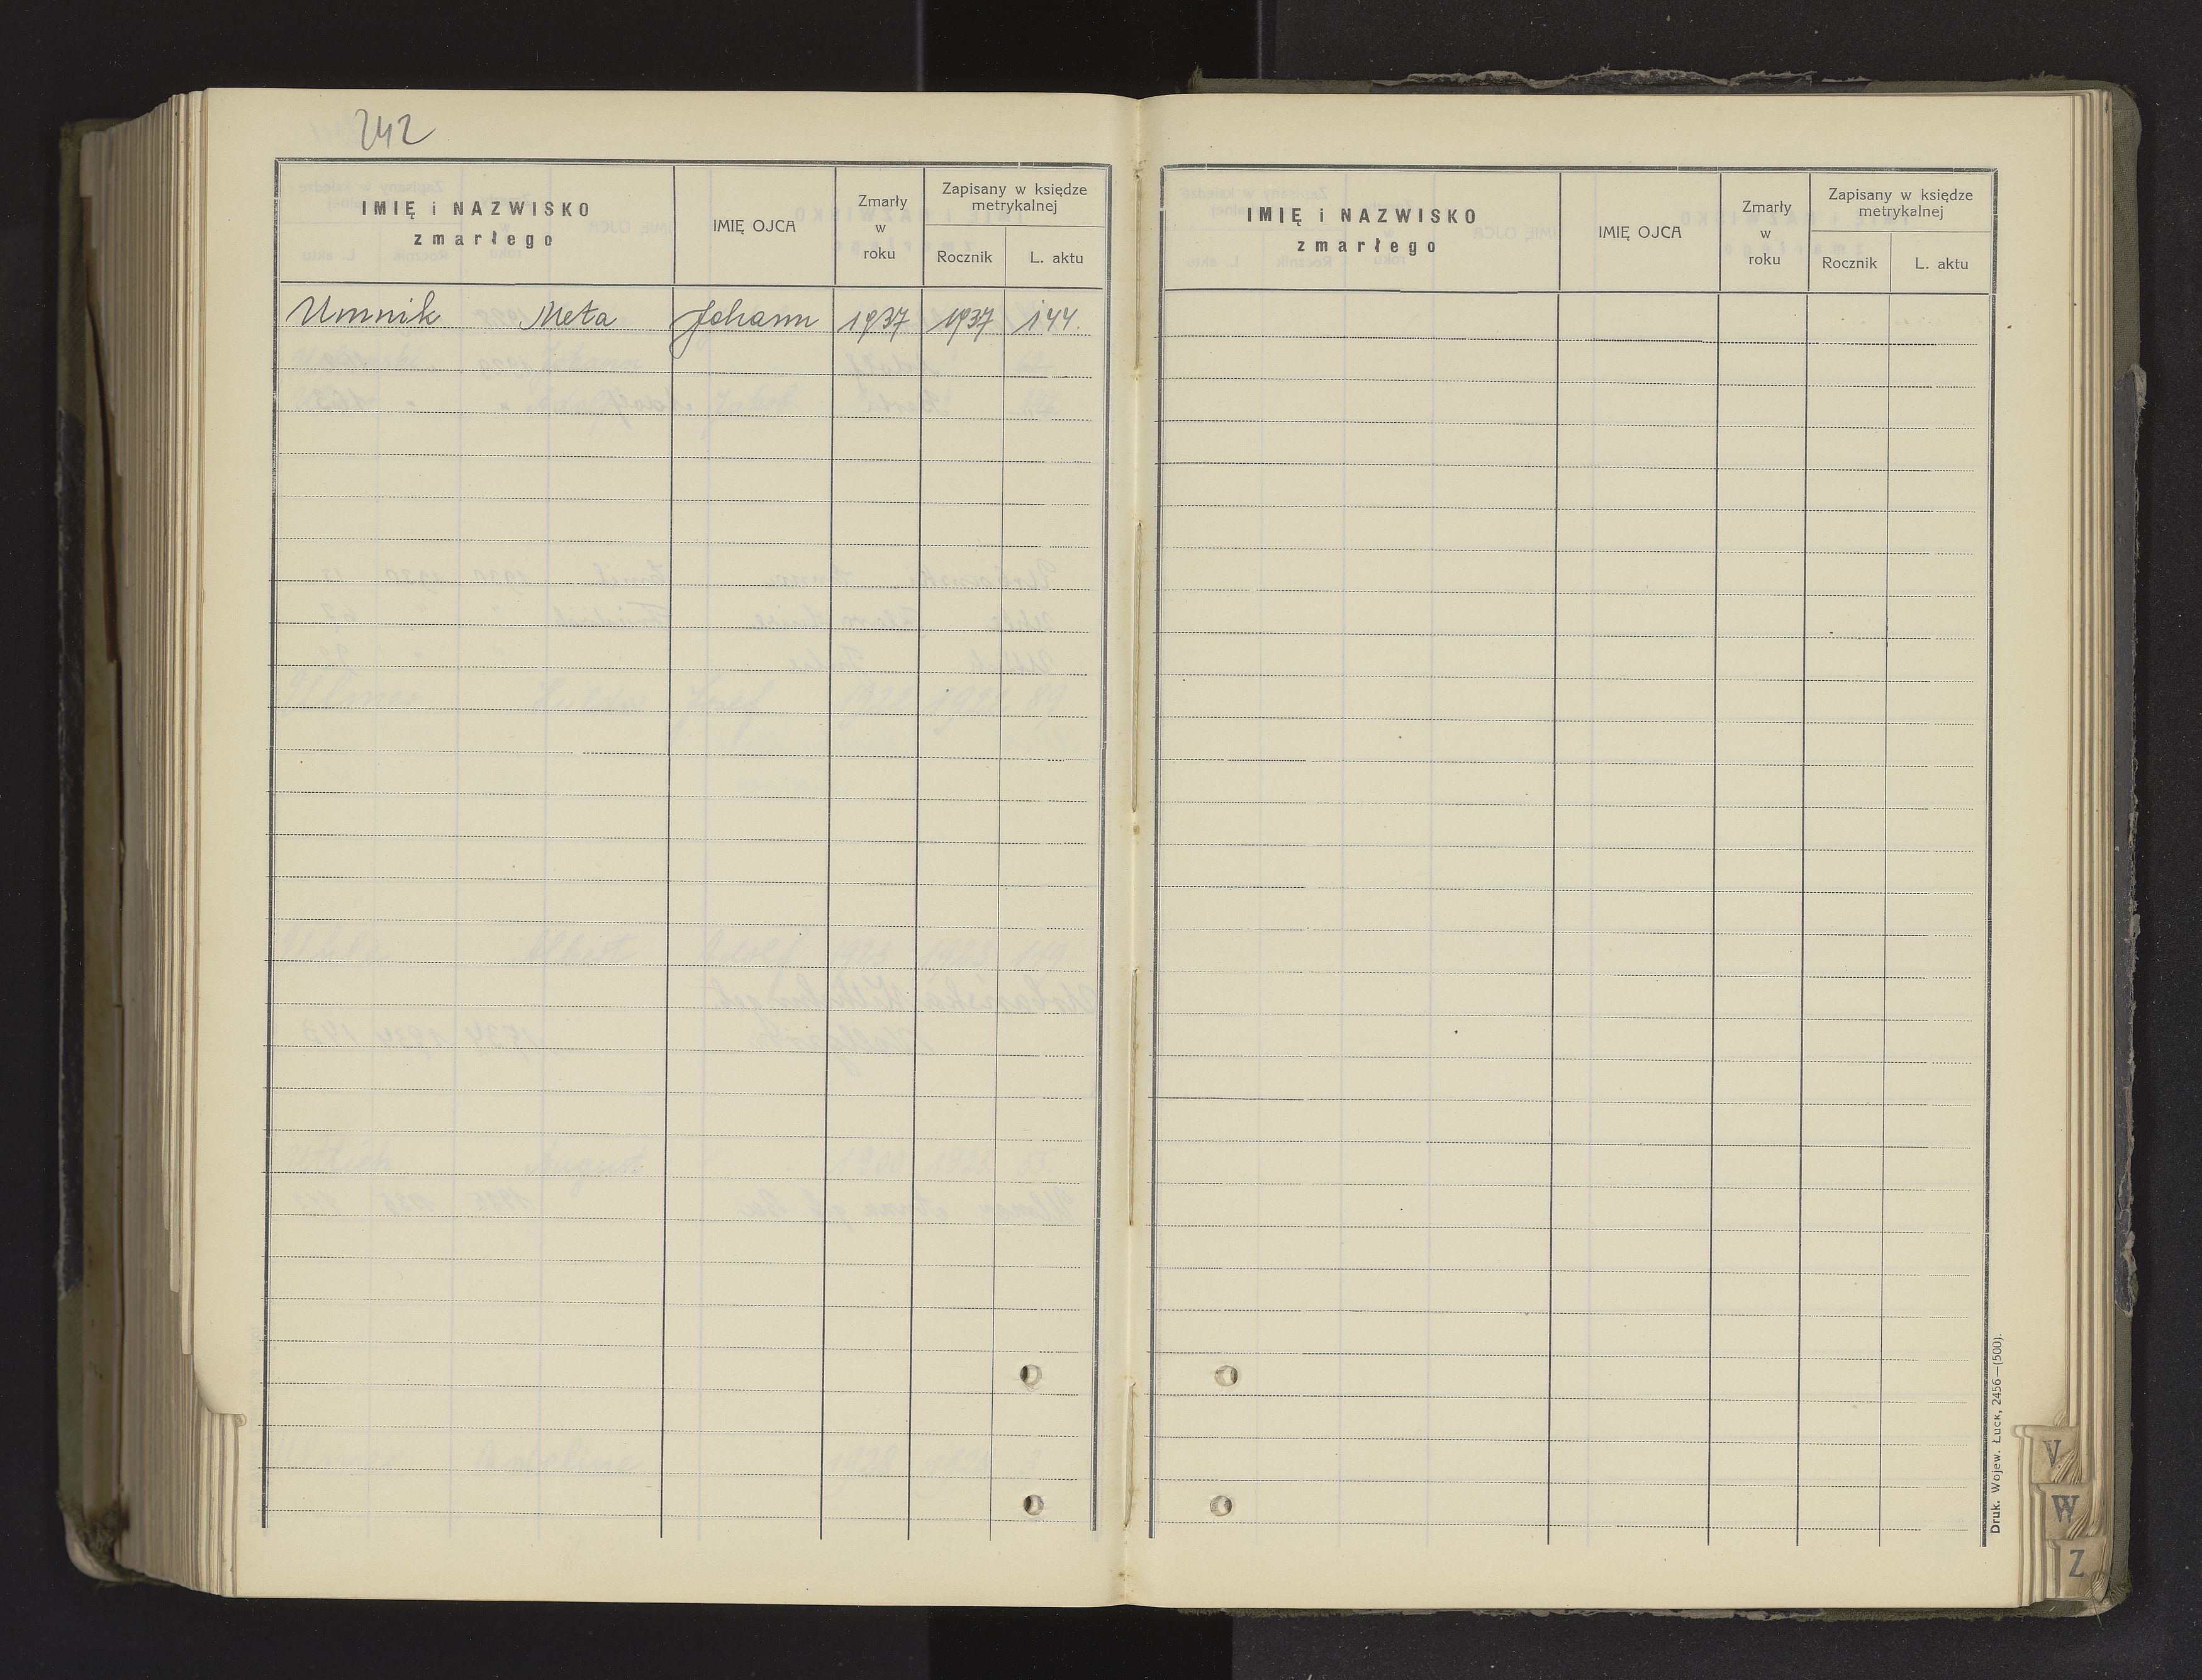 242
IMIĘ i NAZWISKO
zmarłego
IMIĘ OJCA
Zmarły
w
roku
Zapisany w księdze
metrykalnej
Rocznik
L. aktu
Umnik Meta Johann 1937 1937 144.
IMIĘ i NAZWISKO
zmarłego
IMIĘ OJCA
Zmarły
w
roku
Zapisany w księdze
metrykalnej
Rocznik
L. aktu
Druk. Wojew. Łuck, 2456—(500).
V
W
Z